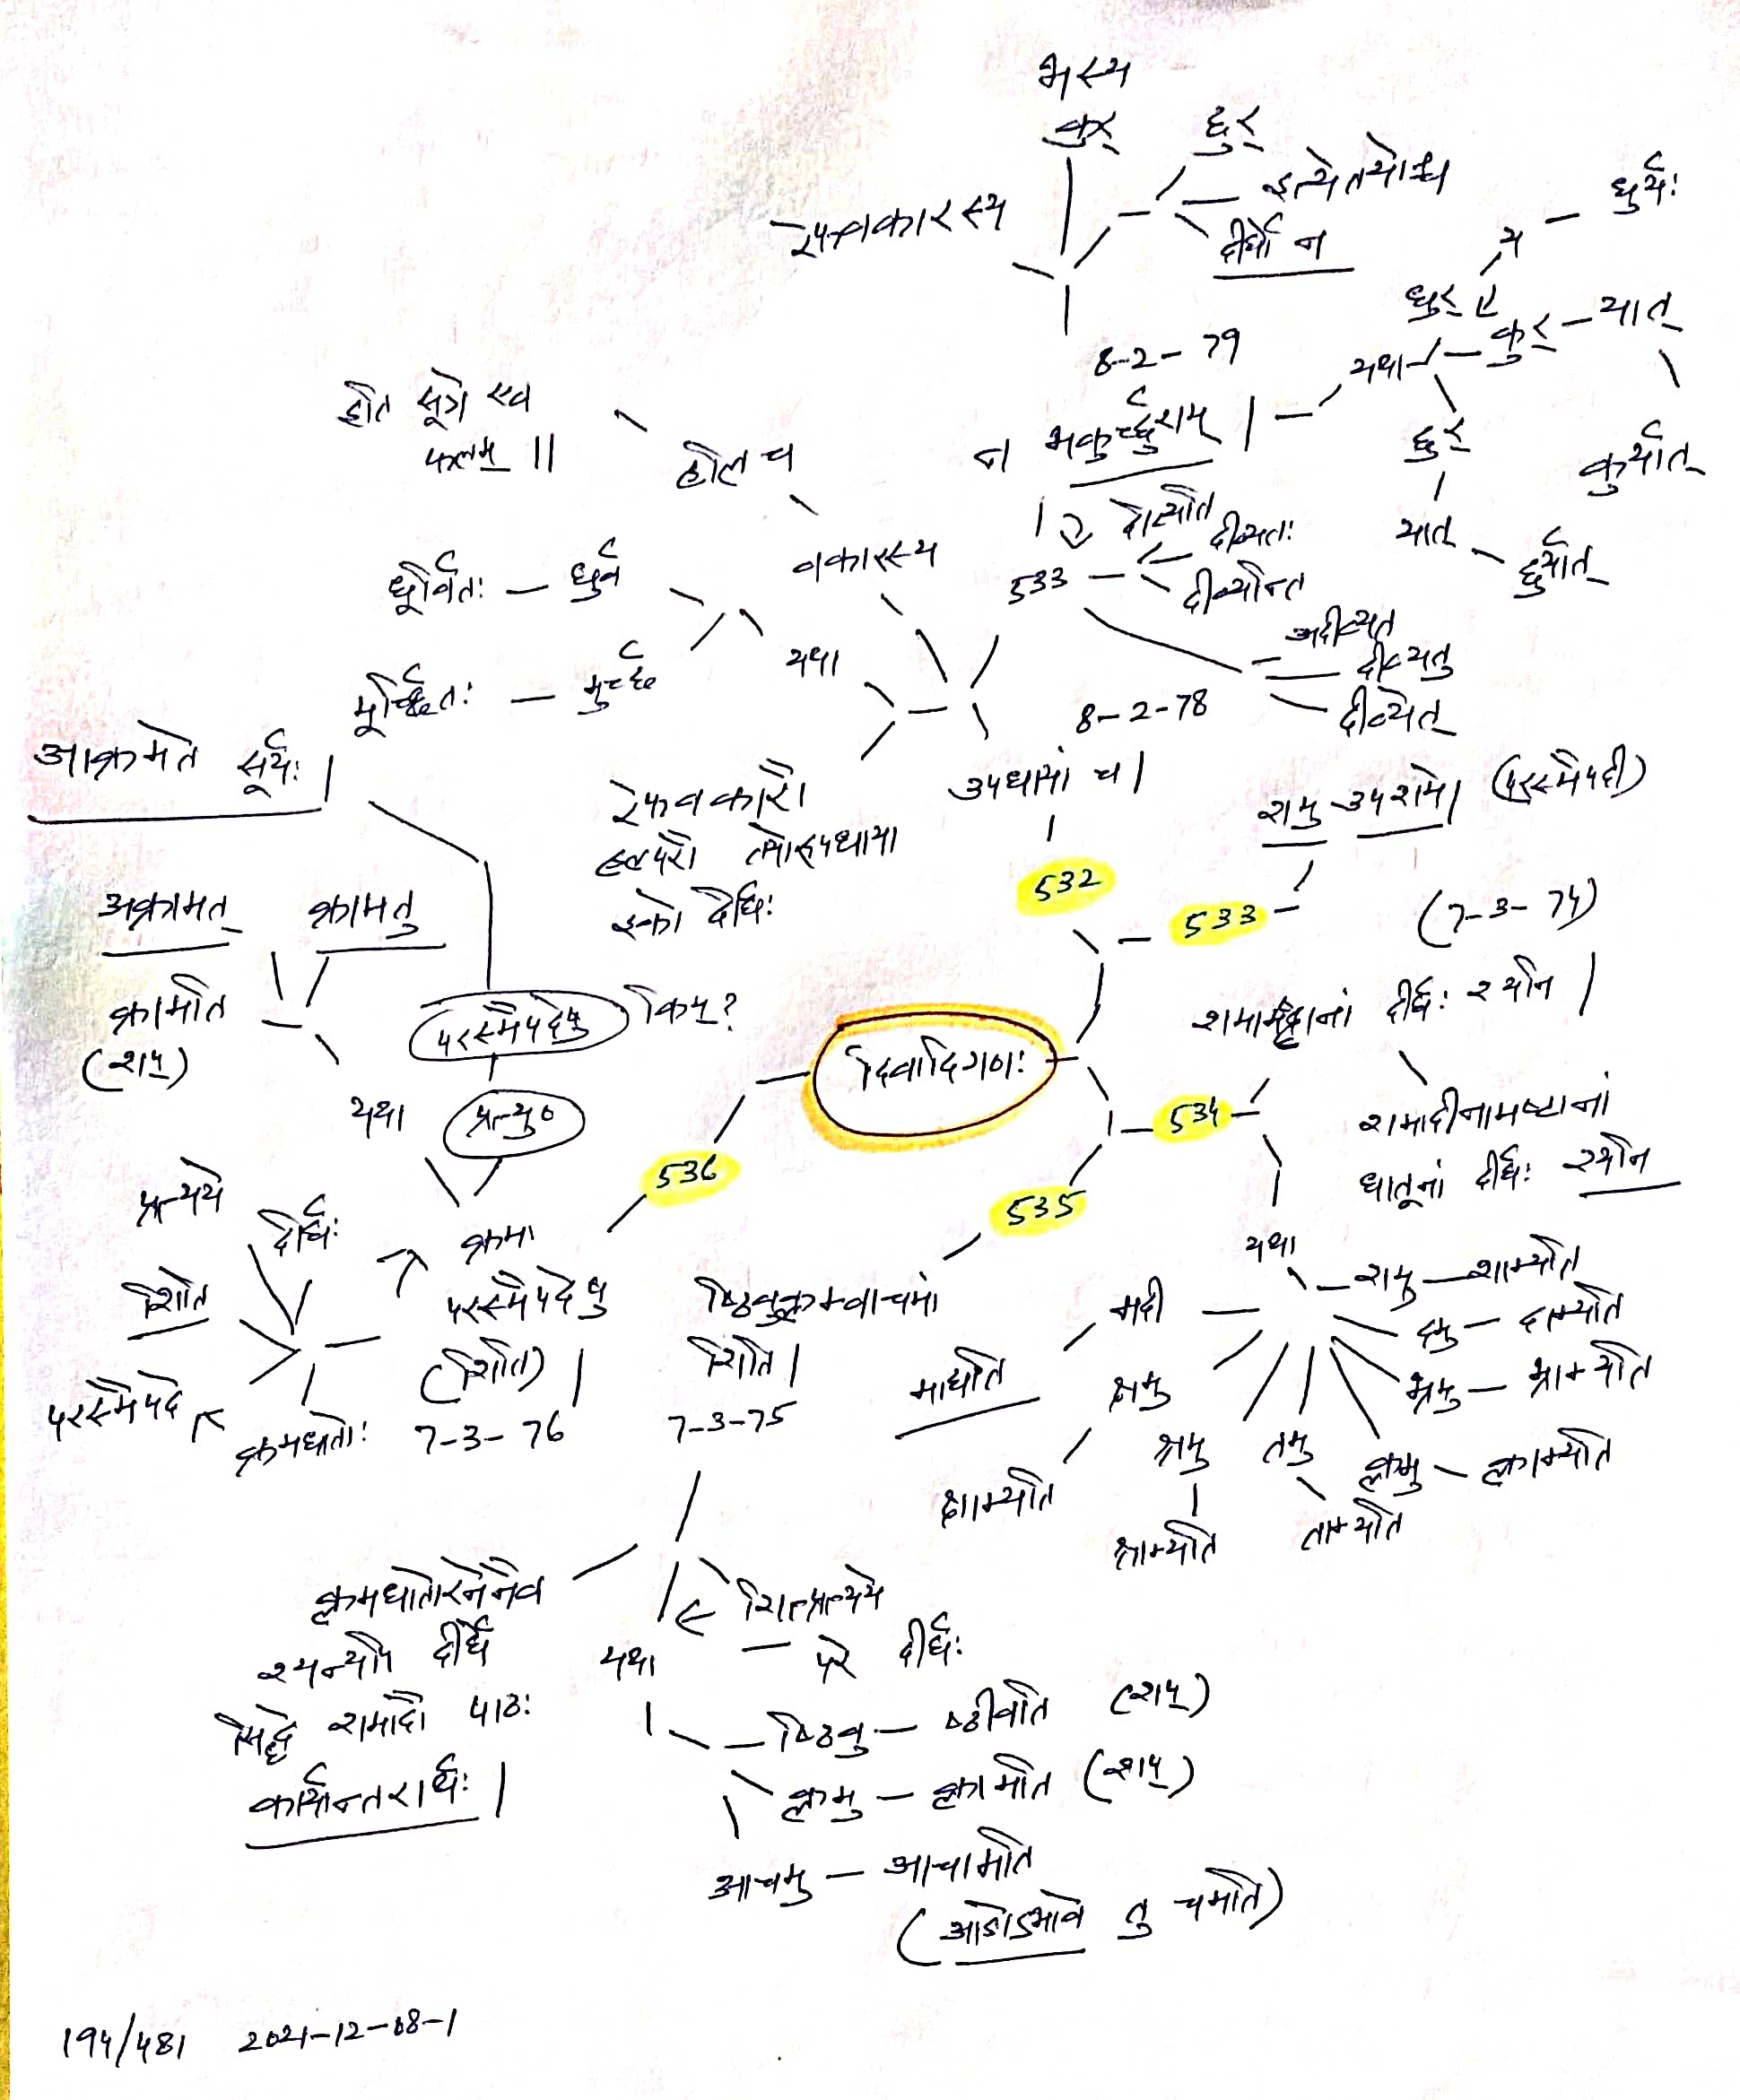 भस्य
कुर्
छुर्
इत्येतयोश्च
दीर्घो न
रेफवकारस्य
8-2-79
न भकुर्छुराम् |
यथा
धुर्
य - धुर्यः
कुर् - यात्
कुर्यात्
छुर्
यात् - छुर्यात्
533
दीव्यति
दीव्यतः
दीव्यन्ति
अदीव्यत्
दीव्यतु
दीव्येत्
इति सूत्रे एव
फलम् ||
हलि च
वकारस्य
धूर्वितः - धुर्व
मूर्च्छितः - मुर्च्छ
यथा
8-2-78
उपधायां च |
रेफवकारौ
हल्परौ तयोरुपधाया
इको दीर्घः
532
533
शमु उपशमे | (परस्मैपदी)
(7-3-74)
शमामष्टानां दीर्घः श्यनि |
534
शमादीनामष्टानां
धातूनां दीर्घः श्यनि
यथा
शमु - शाम्यति
दमु - दाम्यति
भ्रमु - भ्राम्यति
क्लमु - क्लाम्यति
तमु
ताम्यति
श्रमु
श्राम्यति
क्षमु
क्षाम्यति
मदी
माद्यति
दिवादिगणः
535
ष्ठिवुक्लम्वाचमां
शिति |
7-3-75
शित्प्रत्यये
परे दीर्घः
क्लमधातोरनेनैव
श्यन्यपि दीर्घे
सिद्धे शमादौ पाठः
कार्यान्तरार्थः |
यथा
ष्ठिवु - ष्ठीवति (शप्)
क्लमु - क्लामति (शप्)
आचमु - आचामति
(आङोऽभावे तु चमति)
536
क्रमः
परस्मैपदेषु
(शिति) |
7-3-76
क्रमधातोः
परस्मैपदे
शिति
प्रत्यये
दीर्घः
यथा
क्रामति
(शप्)
अक्रामत्
क्रामतु
प्रत्यु०
परस्मैपदेषु किम्?
आक्रमते सूर्यः |
194/481 2021-12-08-1